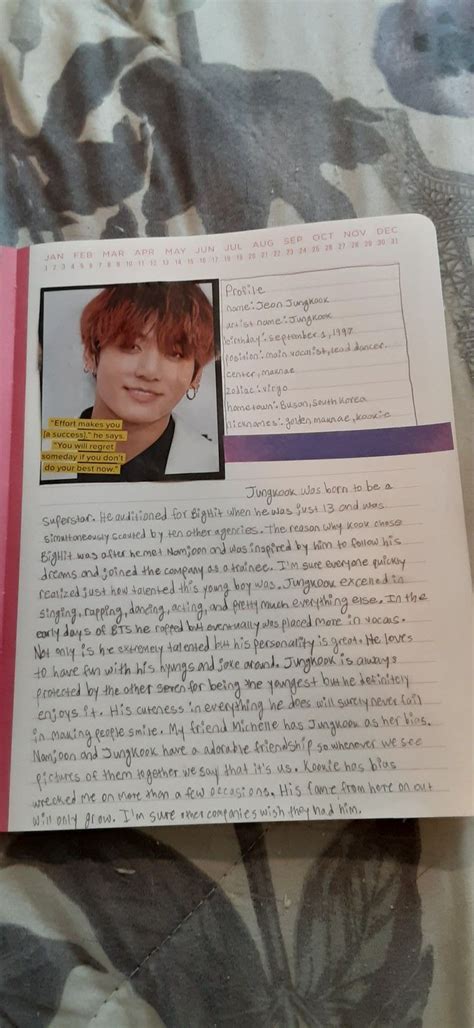 JAN FEB MAR APR MAY JUN JUL AUG SEP OCT NOV DEC
1 2 3 4 5 6 7 8 9 10 11 12 13 14 15 16 17 18 19 20 21 22 23 24 25 26 27 28 29 30 31
Profile
name: Jeon Jungkook
artist name: Jungkook
birthday: September 1, 1997
position: main vocalist, lead dancer
center, maknae
zodiac: virgo
hometown: Busan, South Korea
nicknames: golden maknae, kookie
"Effort makes you
[a success]," he says.
"You will regret
someday if you don't
do your best now."
Jungkook was born to be a
superstar. He auditioned for BigHit when he was just 13 and was
simultaneously scouted by ten other agencies. The reason why Kook chose
BigHit was after he met Namjoon and was inspired by him to follow his
dreams and joined the company as a trainee. I'm sure everyone quickly
realized just how talented this young boy was. Jungkook excelled in
singing, rapping, dancing, acting, and pretty much everything else. In the
early days of BTS he rapped but eventually was placed more in vocals.
Not only is he extremely talented but his personality is great. He loves
to have fun with his hyungs and joke around. Jungkook is always
protected by the other seven for being the youngest but he definitely
enjoys it. His cuteness in everything he does will surely never fail
in making people smile. My friend Michelle has Jungkook as her bias.
Namjoon and Jungkook have a adorable friendship so whenever we see
pictures of them together we say that it's us. Kookie has bias
wrecked me on more than a few occasions. His fame from here on out
will only grow. I'm sure other companies wish they had him.